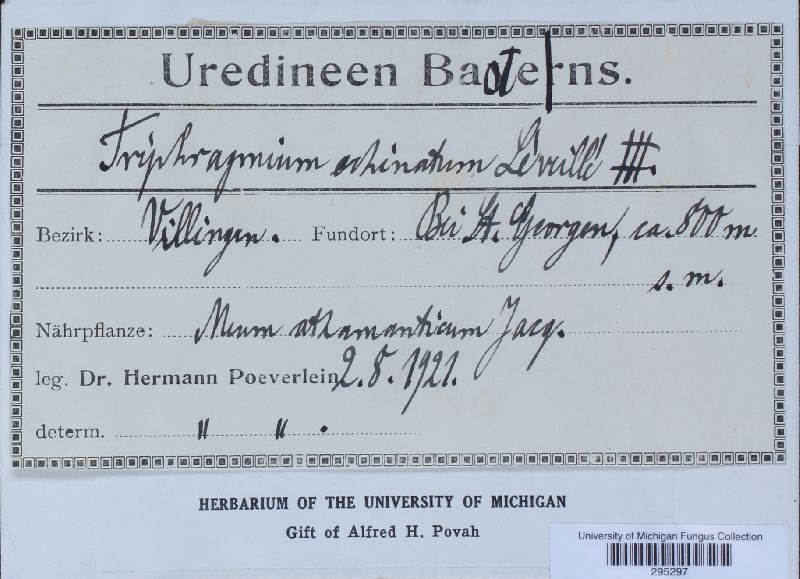 Uredineen Badens.
Triphragmium echinatum Léveillé III.
Bezirk: Villingen. Fundort: Bei St. Georgen, ca. 800 m
s. m.
Nährpflanze: Meum athamanticum Jacq.
leg. Dr. Hermann Poeverlein 2. 8. 1921.
determ. " " .
HERBARIUM OF THE UNIVERSITY OF MICHIGAN
Gift of Alfred H. Povah
University of Michigan Fungus Collection
295297